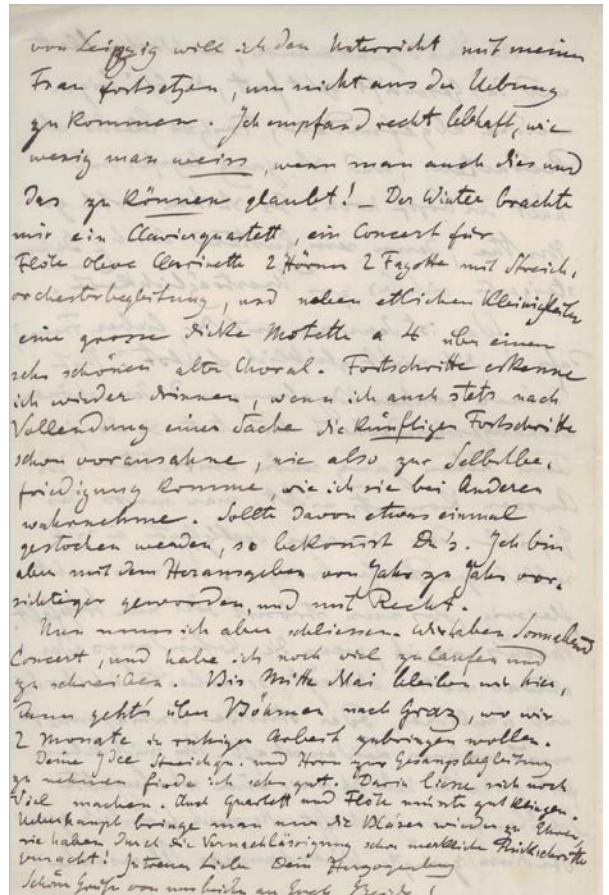 von Leipzig will ich den Unterricht mit meiner
Frau fortsetzen, um nicht aus der Uebung
zu kommen. Ich empfand recht lebhaft, wie
wenig man weiss, wenn man auch dies und
das zu können glaubt! – Der Winter brachte
mir ein Clavierquartett, ein Concert für
Flöte Oboe Clarinette 2 Hörner 2 Fagotte mit Streich-
orchesterbegleitung, und neben etlichen Kleinigkeiten
eine grosse dicke Motette a 4 über einen
sehr schönen alten Choral. Fortschritte erkenne
ich wieder drinnen, wenn ich auch stets nach
Vollendung einer Sache die künftigen Fortschritte
schon vorausahne, nie also zur Selbstbe-
friedigung komme, wie ich sie bei Anderen
wahrnehme. Sollte davon etwas einmal
gestochen werden, so bekommst Du's. Ich bin
aber mit dem Herausgeben von Jahr zu Jahr vor-
sichtiger geworden, und mit Recht.
Nun muss ich aber schliessen. Wir haben Sonnabend
Concert, und habe ich noch viel zu laufen und
zu schreiben. Bis Mitte Mai bleiben wir hier,
dann geht's über Böhmen nach Graz, wo wir
2 Monate in ruhiger Arbeit zubringen wollen.
Deine Idee Streichqu. und Horn zur Gesangsbegleitung
zu nehmen finde ich sehr gut. Darin liesse sich noch
Viel machen. Auch Quartett und Flöte müsste gut klingen.
Ueberhaupt bringe man nur die Bläser wieder zu Ehren,
sie haben durch die Vernachlässigung schon merkliche Rückschritte
gemacht! In treuer Liebe Dein Herzogenberg
Schöne Grüsse von uns beiden an Euch Beide!